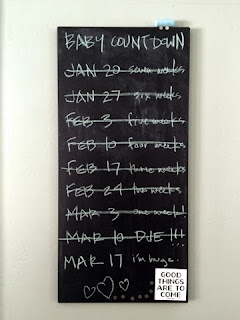 BABY COUNTDOWN
JAN 20 seven weeks
JAN 27 six weeks
FEB 3 five weeks
FEB 10 four weeks
FEB 17 three weeks
FEB 24 two weeks
MAR 3 one week!
MAR 10 DUE !!!
MAR 17 i'm huge.
GOOD
THINGS
ARE TO
COME